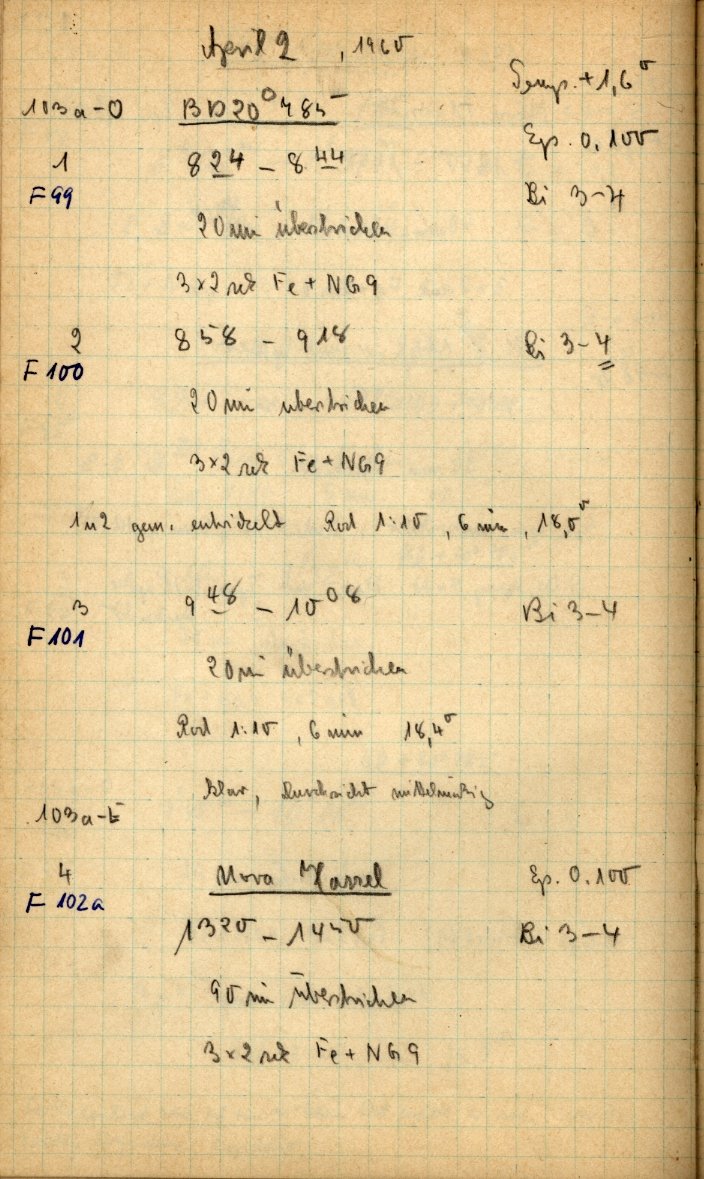 April 2, 1960
Temp. +1,6°
103a-O BD 20° 485
Sp. 0.100
1 8 24 - 8 44 Bi 3-4
F 99
20 min überstrichen
3x2 sek Fe + NG9
2 8 58 - 9 18 Bi 3-4
F 100
20 min überstrichen
3x2 sek Fe + NG9
1 u 2 gem. entwickelt Rod 1:10, 6 min, 18,0°
3 9 48 - 10 08 Bi 3-4
F 101
20 min überstrichen
Rod 1:10, 6 min 18,4°
klar, Durchsicht mittelmäßig
103a-E
4 Nova Hassel Sp. 0.100
F 102a
13 20 - 14 50 Bi 3-4
90 min überstrichen
3x2 sek Fe + NG9